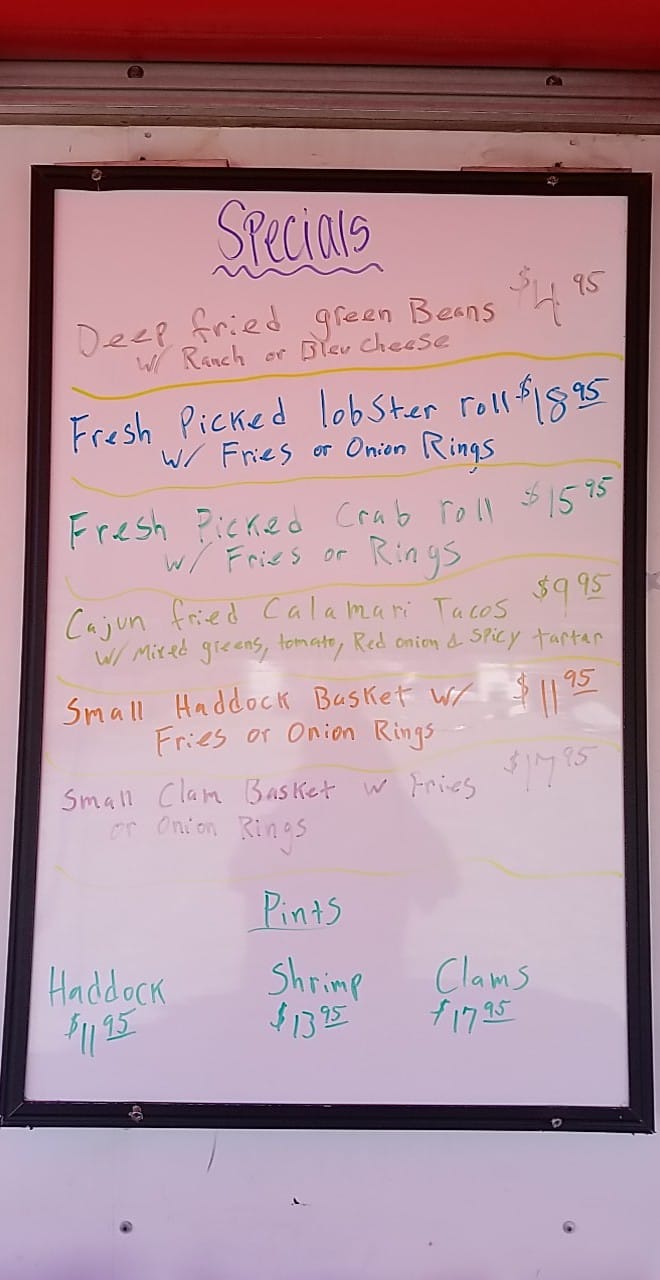 Specials
Deep fried green Beans $4 95
w/ Ranch or Bleu Cheese
Fresh Picked lobster roll $18 95
w/ Fries or Onion Rings
Fresh Picked Crab roll $15 95
w/ Fries or Rings
Cajun fried Calamari Tacos $9 95
w/ Mixed greens, tomato, Red onion & Spicy tartar
Small Haddock Basket w/ $11 95
Fries or Onion Rings
Small Clam Basket w Fries $17 95
or Onion Rings
Pints
Haddock Shrimp Clams
$11 95 $13 95 $17 95